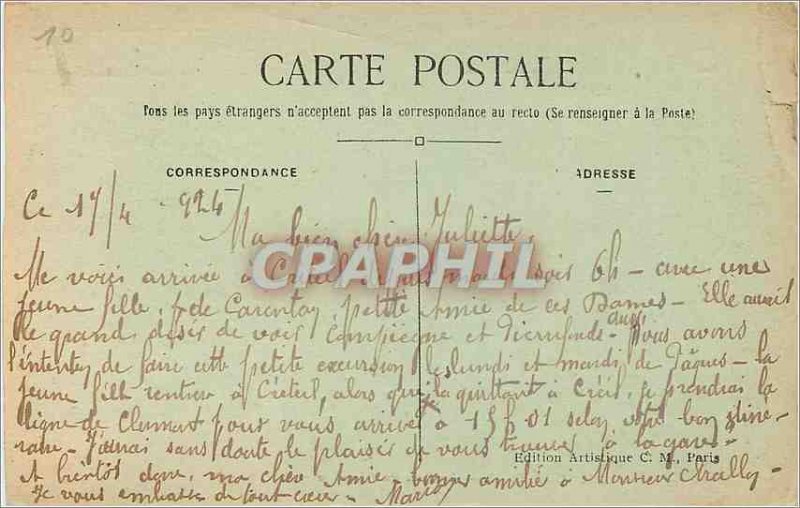 10
CARTE POSTALE
Tous les pays étrangers n'acceptent pas la correspondance au recto (Se renseigner à la Poste)
CORRESPONDANCE
ADRESSE
Ce 17/4 - 924
Ma bien chère Juliette,
Me voici arrivée à Créteil mardi soir 6h - avec une
jeune fille de Carentan, petite Amie de ces Dames - Elle aurait
le grand désir de voir Compiègne et Pierrefonds - donc nous avons
l'intention de faire cette petite excursion le lundi et mardi de Pâques - la
jeune fille rentrera à Créteil, alors que la quittant à Creil, je prendrai la
ligne de Clermont pour vous arriver à 15h01 selon votre bon itiné-
raire - J'aurai sans doute le plaisir de vous trouver à la gare -
A bientôt donc, ma chère Amie - bonnes amitiés à Monsieur
Je vous embrasse de tout cœur - Maria
Edition Artistique C. M., Paris
CPAPHIL